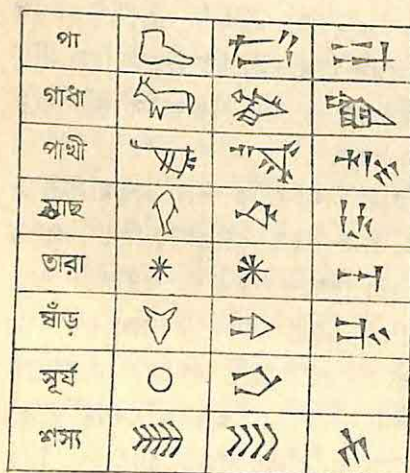 পা
গাধা
পাখী
মাছ
তারা
ষাঁড়
সূর্য
শস্য